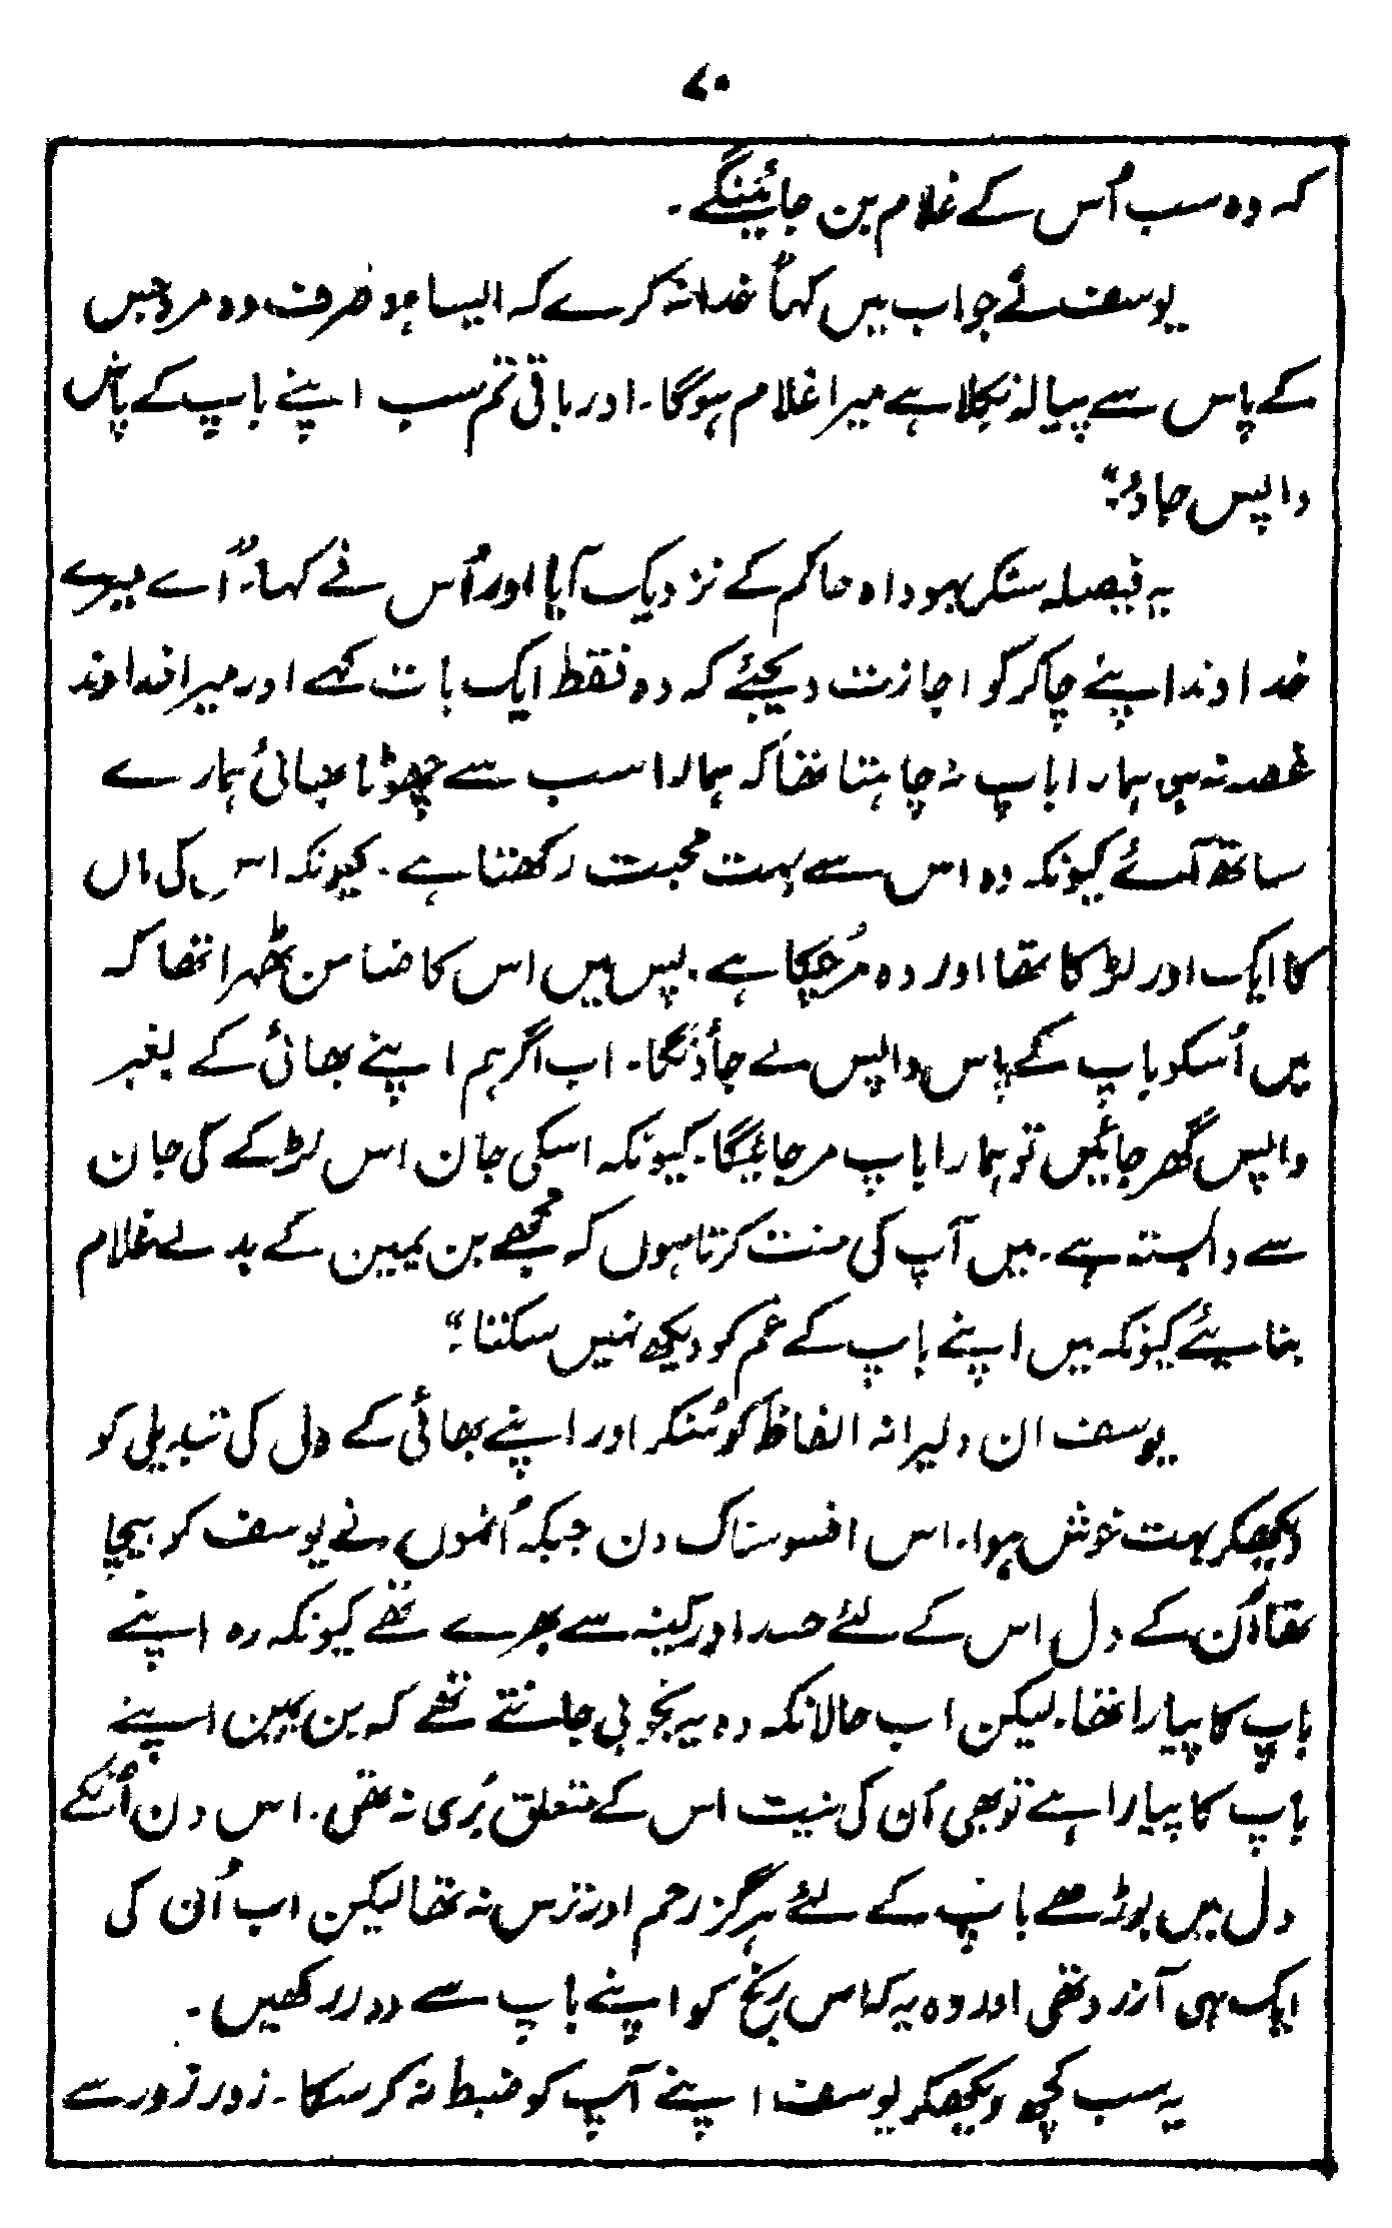 ۷۰
کہ وہ سب اُس کے غلام بن جائینگے۔
یوسف نے جواب میں کہا "خدا نہ کرے کہ ایسا ہو صرف وہ مرد جس
کے پاس سے پیالہ نکلا ہے میرا غلام ہوگا۔ اور باقی تم سب اپنے باپ کے پاس
واپس جاؤ۔"
یہ فیصلہ سنکر یہوداہ حاکم کے نزدیک آیا اور اُس نے کہا۔ "اے میرے
خداوند اپنے چاکر کو اجازت دیجئے کہ وہ فقط ایک بات کہے اور میرا خداوند
غصہ نہ ہو ہمارا باپ نہ چاہتا تھا کہ ہمارا سب سے چھوٹا بھائی ہمارے
ساتھ آئے کیونکہ وہ اس سے بہت محبت رکھتا ہے۔ کیونکہ اس کی ماں
کا ایک اور لڑکا تھا اور وہ مُرچکا ہے۔ پس میں اس کا ضامن ٹھہرا تھا کہ
میں اُسکو باپ کے پاس واپس لے جاؤنگا۔ اب اگر ہم اپنے بھائی کے بغیر
واپس گھر جائیں تو ہمارا باپ مر جائیگا۔ کیونکہ اسکی جان اس لڑکے کی جان
سے وابستہ ہے۔ میں آپ کی منت کرتا ہوں کہ مُجھے بن یمین کے بدلے غلام
بنائیے کیونکہ میں اپنے باپ کے غم کو دیکھ نہیں سکتا۔"
یوسف ان دلیرانہ الفاظ کو سُنکر اور اپنے بھائی کے دل کی تبدیلی کو
دیکھکر بہت خوش ہوا۔ اس افسوسناک دن جبکہ اُنہوں نے یوسف کو بیچا
تھا اُن کے دل اس کے لئے حسد اور کینہ سے بھرے تھے کیونکہ وہ اپنے
باپ کا پیارا تھا۔ لیکن اب حالانکہ وہ یہ بخوبی جانتے تھے کہ بن یمین اپنے
باپ کا پیارا ہے تو بھی اُن کی نیت اس کے متعلق بُری نہ تھی۔ اس دن اُنکے
دل میں بوڑھے باپ کے لئے ہرگز رحم اور ترس نہ تھا لیکن اب اُن کی
ایک ہی آرزو تھی اور وہ یہ کہ اس رنج کو اپنے باپ سے دور رکھیں۔
یہ سب کچھ دیکھکر یوسف اپنے آپ کو ضبط نہ کر سکا۔ زور زور سے